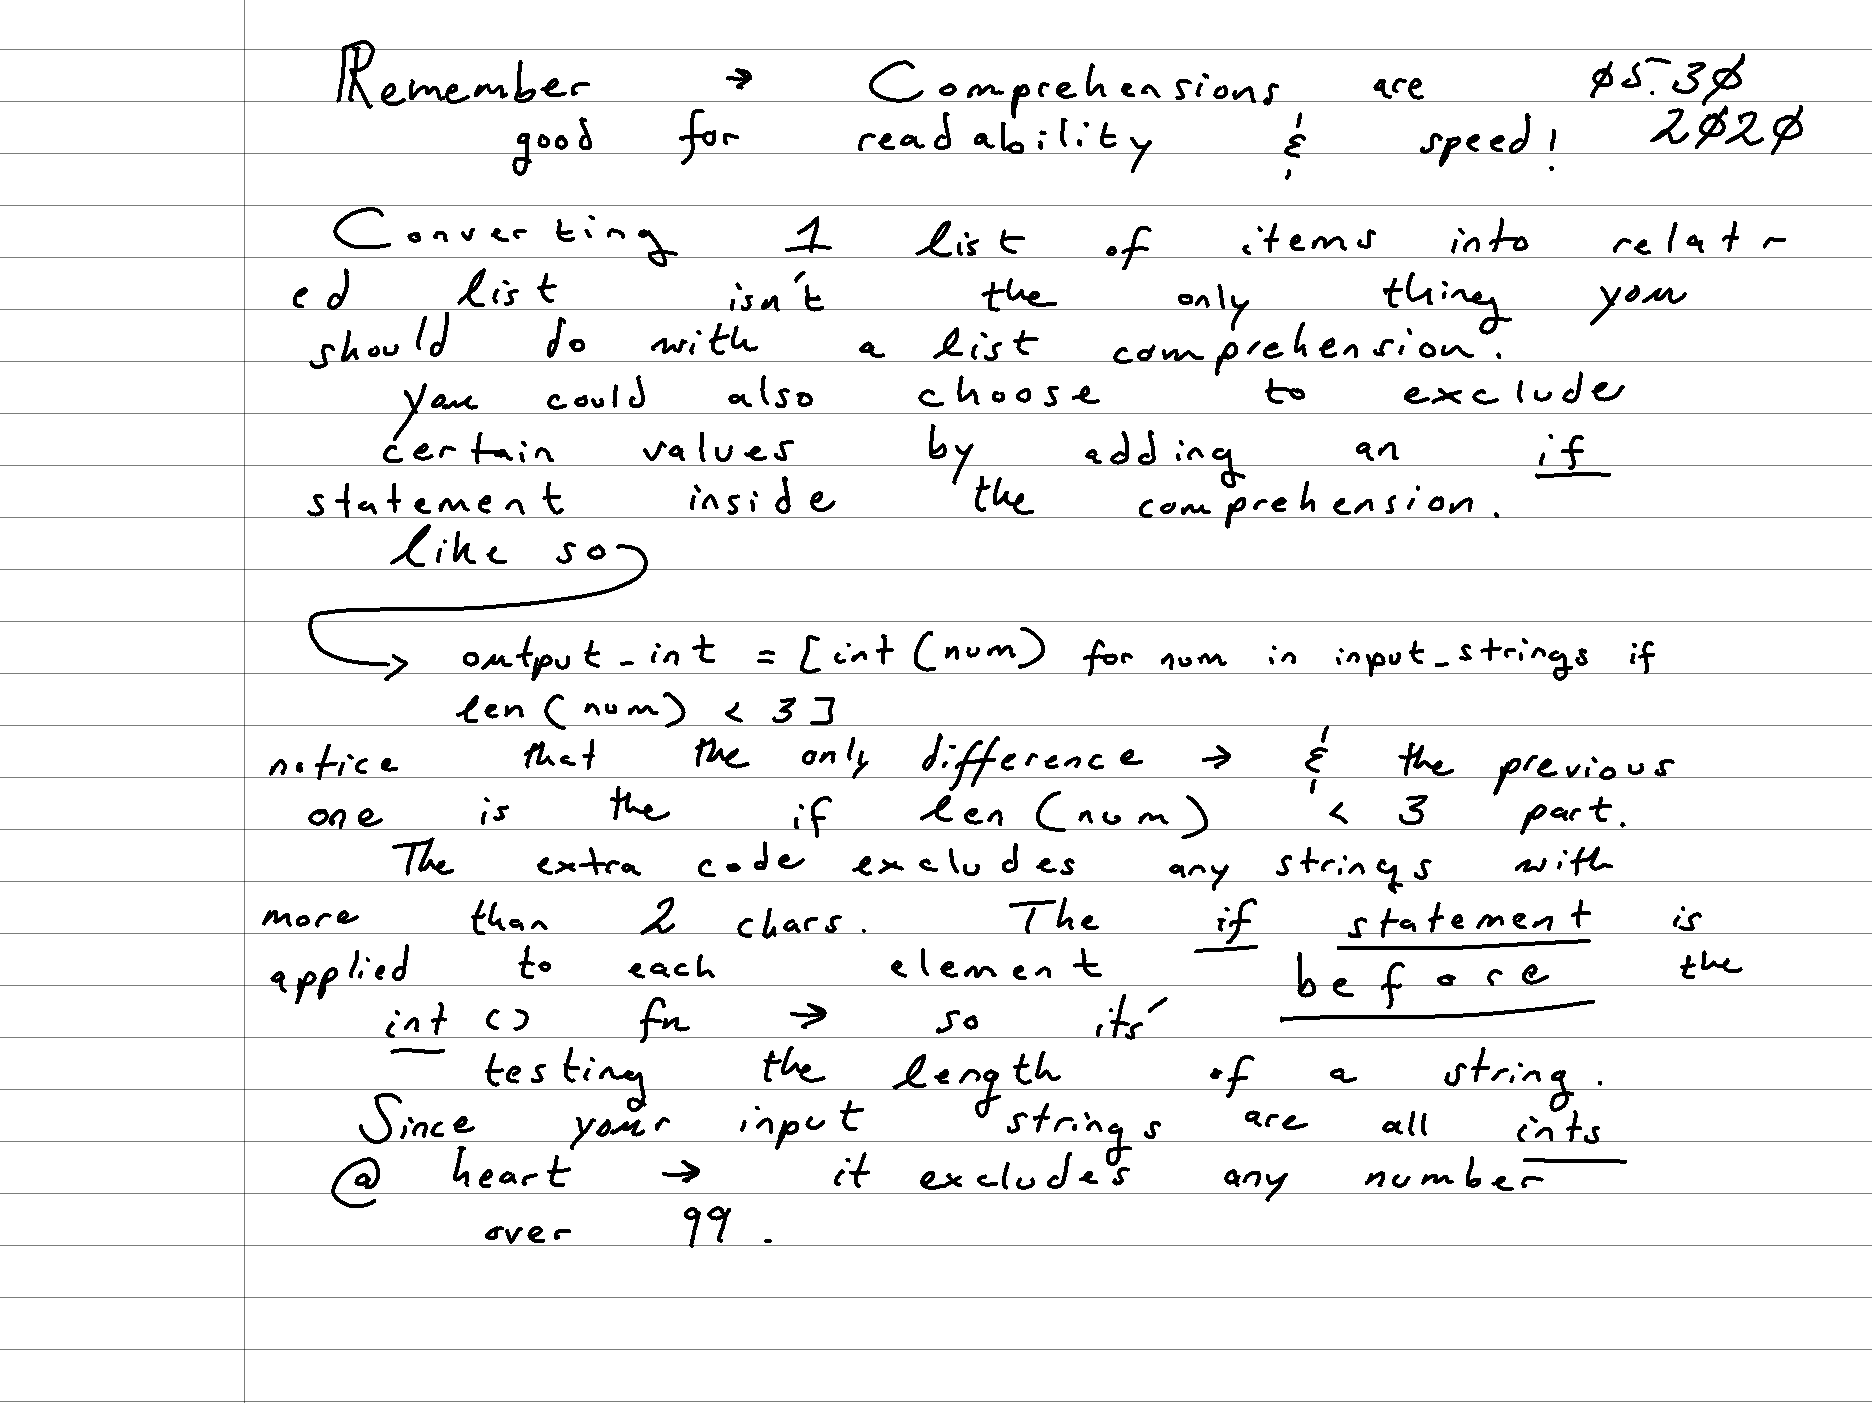 Remember → Comprehensions are 05.30
good for readability & speed! 2020
Converting 1 list of items into relat-
ed list isn't the only thing you
should do with a list comprehension.
you could also choose to exclude
certain values by adding an if
statement inside the comprehension.
like so
→ output_int = [int(num) for num in input_strings if
len(num) < 3]
notice that the only difference → & the previous
one is the if len(num) < 3 part.
The extra code excludes any strings with
more than 2 chars. The if statement is
applied to each element before the
int() fn → so its'
testing the length of a string.
Since your input strings are all ints
@ heart → it excludes any number
over 99.